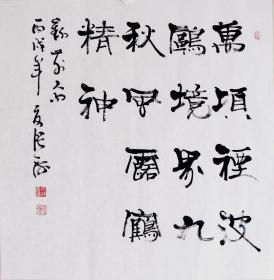 萬頃煙波
鷗境界九
秋風露鶴
精神
丙戌年